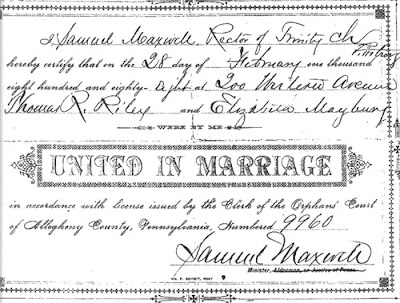 I, Samuel Maxwell, Rector of Trinity Ch Pittsburg
hereby certify that on the 28 day of February one thousand
eight hundred and eighty-eight at 200 Avenue
Thomas R. Riley and Elizabeth Mayburry
WERE BY ME
UNITED IN MARRIAGE
in accordance with license issued by the Clerk of the Orphans' Court
of Allegheny County, Pennsylvania, Numbered 9960
Samuel Maxwell
Minister, Alderman, or Justice of Peace.